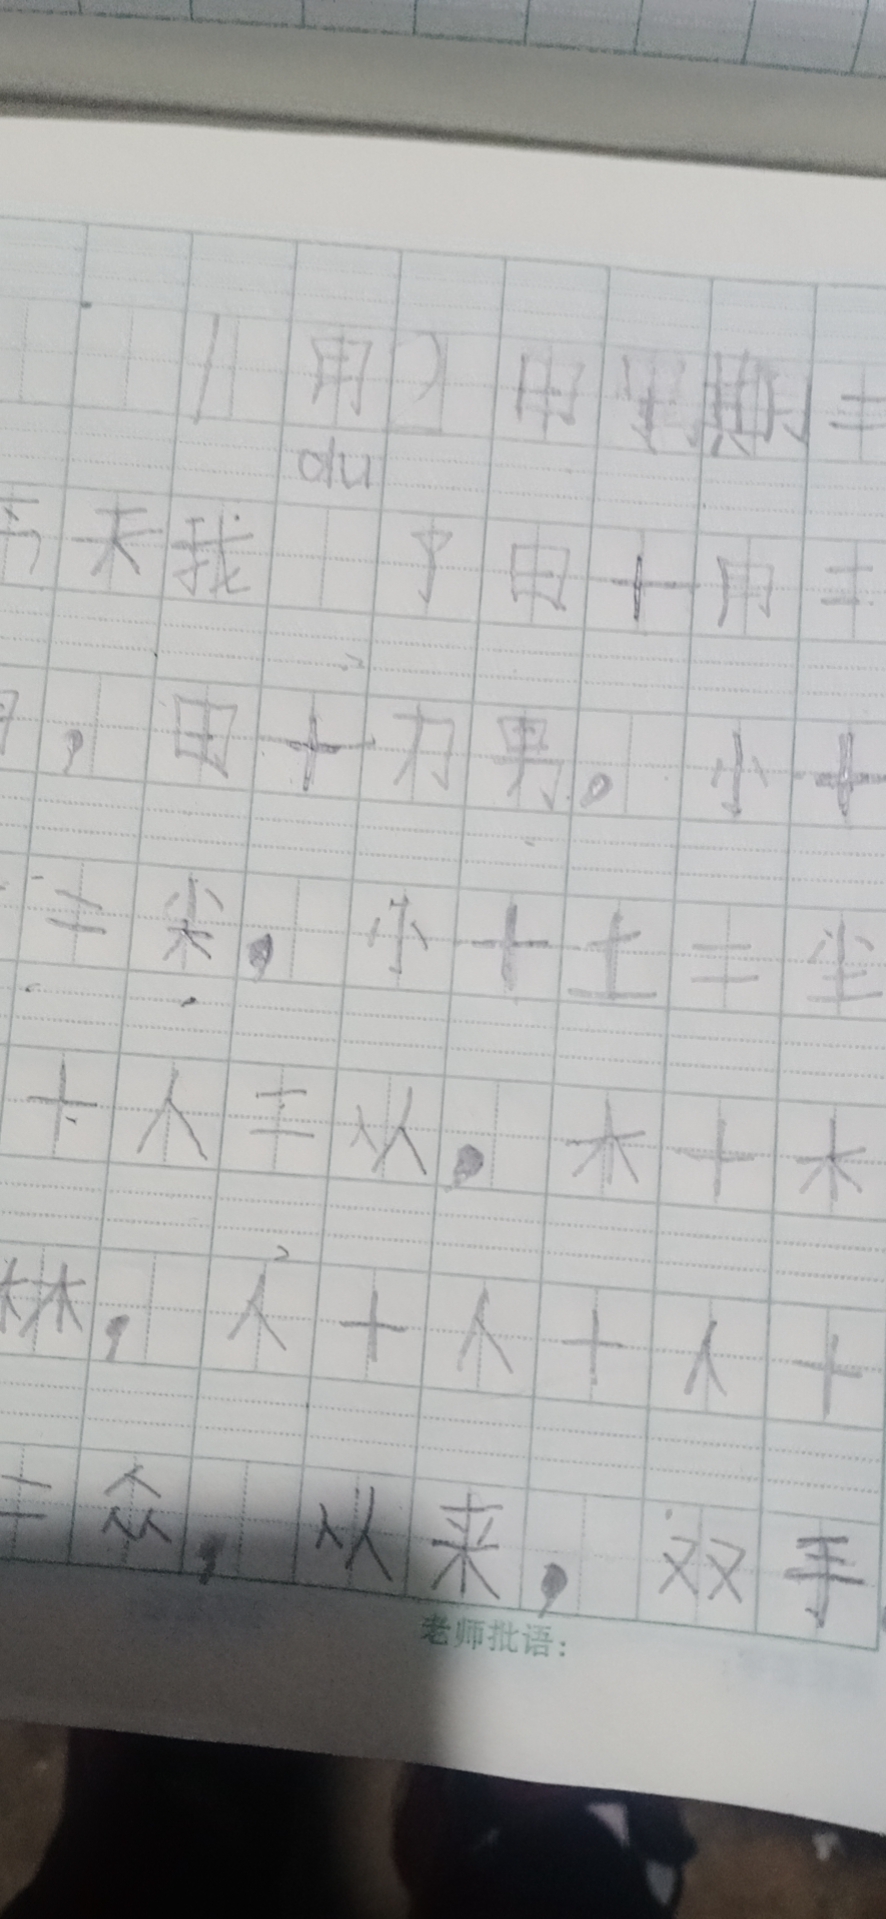 用 田
du
天我 了田十用二
，田十力男。小十
二尖，小十土二尘
十人二从，木十木
林，人十人十人十
二众，从来，双手
老师批语：